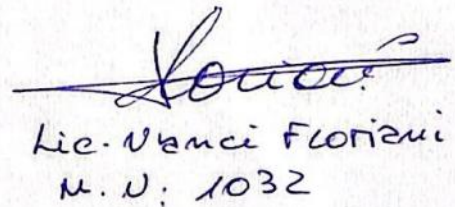 Lic. Nanci Floriani
M. N: 1032